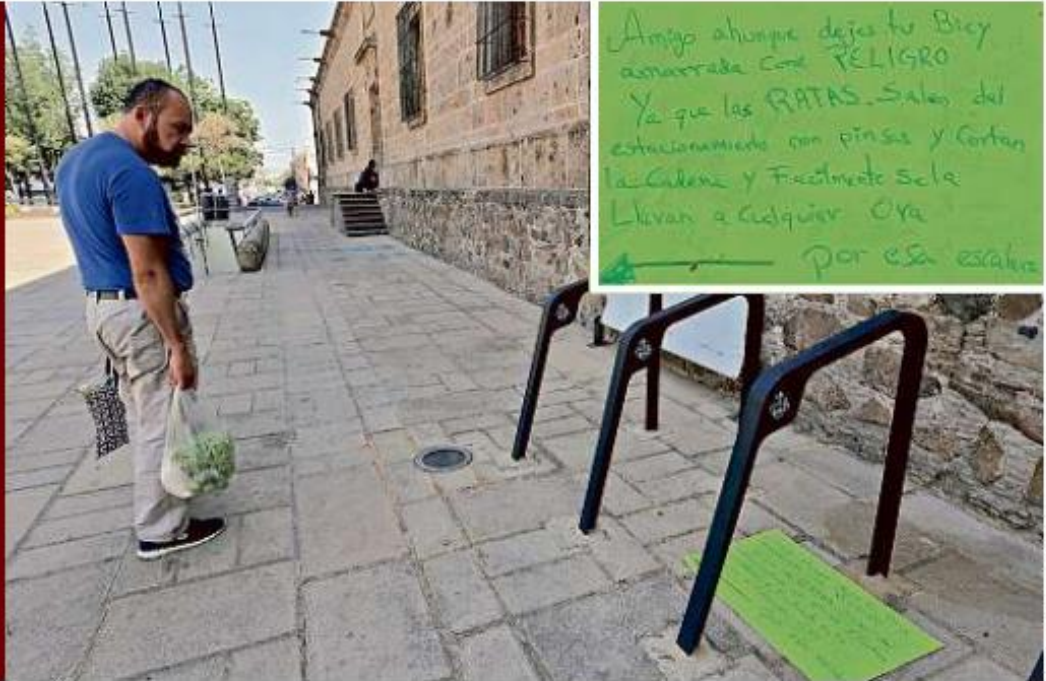 Amigo ahunque dejes tu Bicy
amarrada Corre PELIGRO
Ya que las RATAS. Salen del
estacionamiento con pinsas y Cortan
la Cadena y Facilmente se la
Llevan a Cualquier Ora
por esa escalera